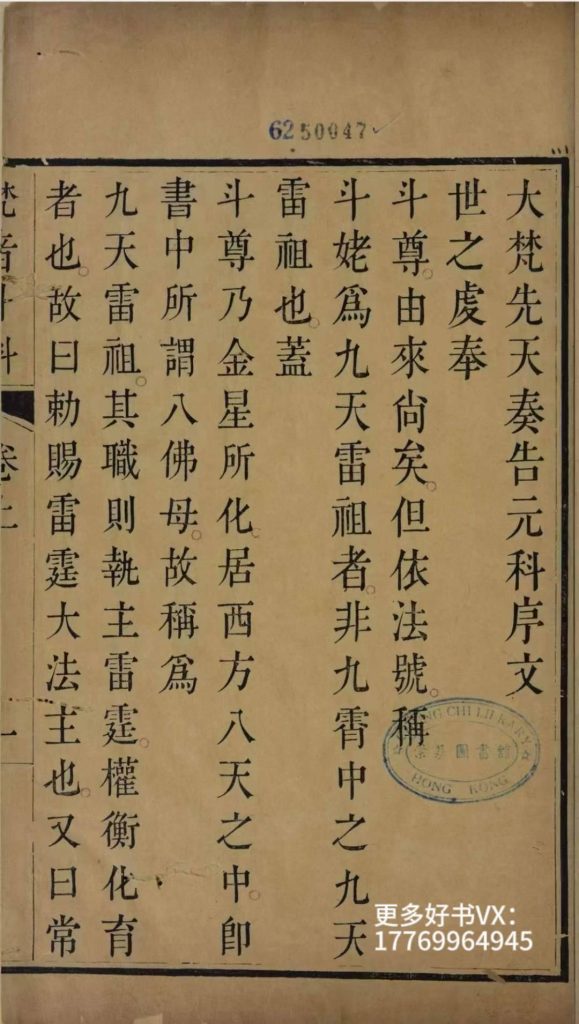 6250047
大梵先天奏告元科序文
世之虔奉
斗尊。由來尙矣。但依法號。稱
斗姥爲九天雷祖者。非九霄中之九天
雷祖也。蓋
斗尊乃金星所化。居西方八天之中。卽
書中所謂八佛母。故稱爲
九天雷祖。其職則執主雷霆。權衡化育
者也。故曰勅賜雷霆大法主也。又曰常
梵音斗科
卷上
一
CHI LIBRARY
圖書館
HONG KONG
更多好书VX：
17769964945